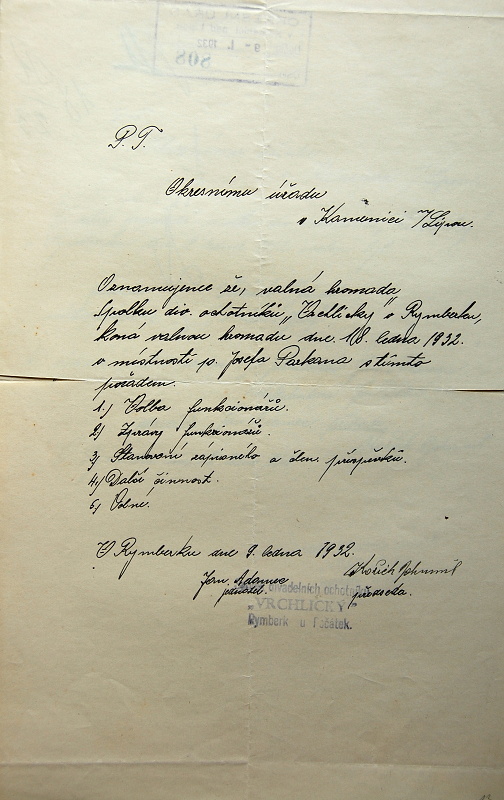 9 - I. 1932
808
P. T.
Okresnímu úřadu
v Kamenici n/Lipou.
Oznamujeme že, valná hromada
Spolku div. ochotníků „Vrchlický" v Rymbarku,
koná valnou hromadu dne. 18. ledna 1932.
v místnosti p. Josefa Parkana s tímto
pořadem.
1.) Volba funkcionářů.
2) Zprávy funkcionářů.
3) Stanovení zápisného a člen. příspěvků.
4) Další činnost.
5) Volné.
V Rymbarku dne 9. ledna 1932.
Jan. Adamec Bohumil
jednatel. předseda.
divadelních ochotníků
„VRCHLICKÝ"
Rymberk u Počátek.